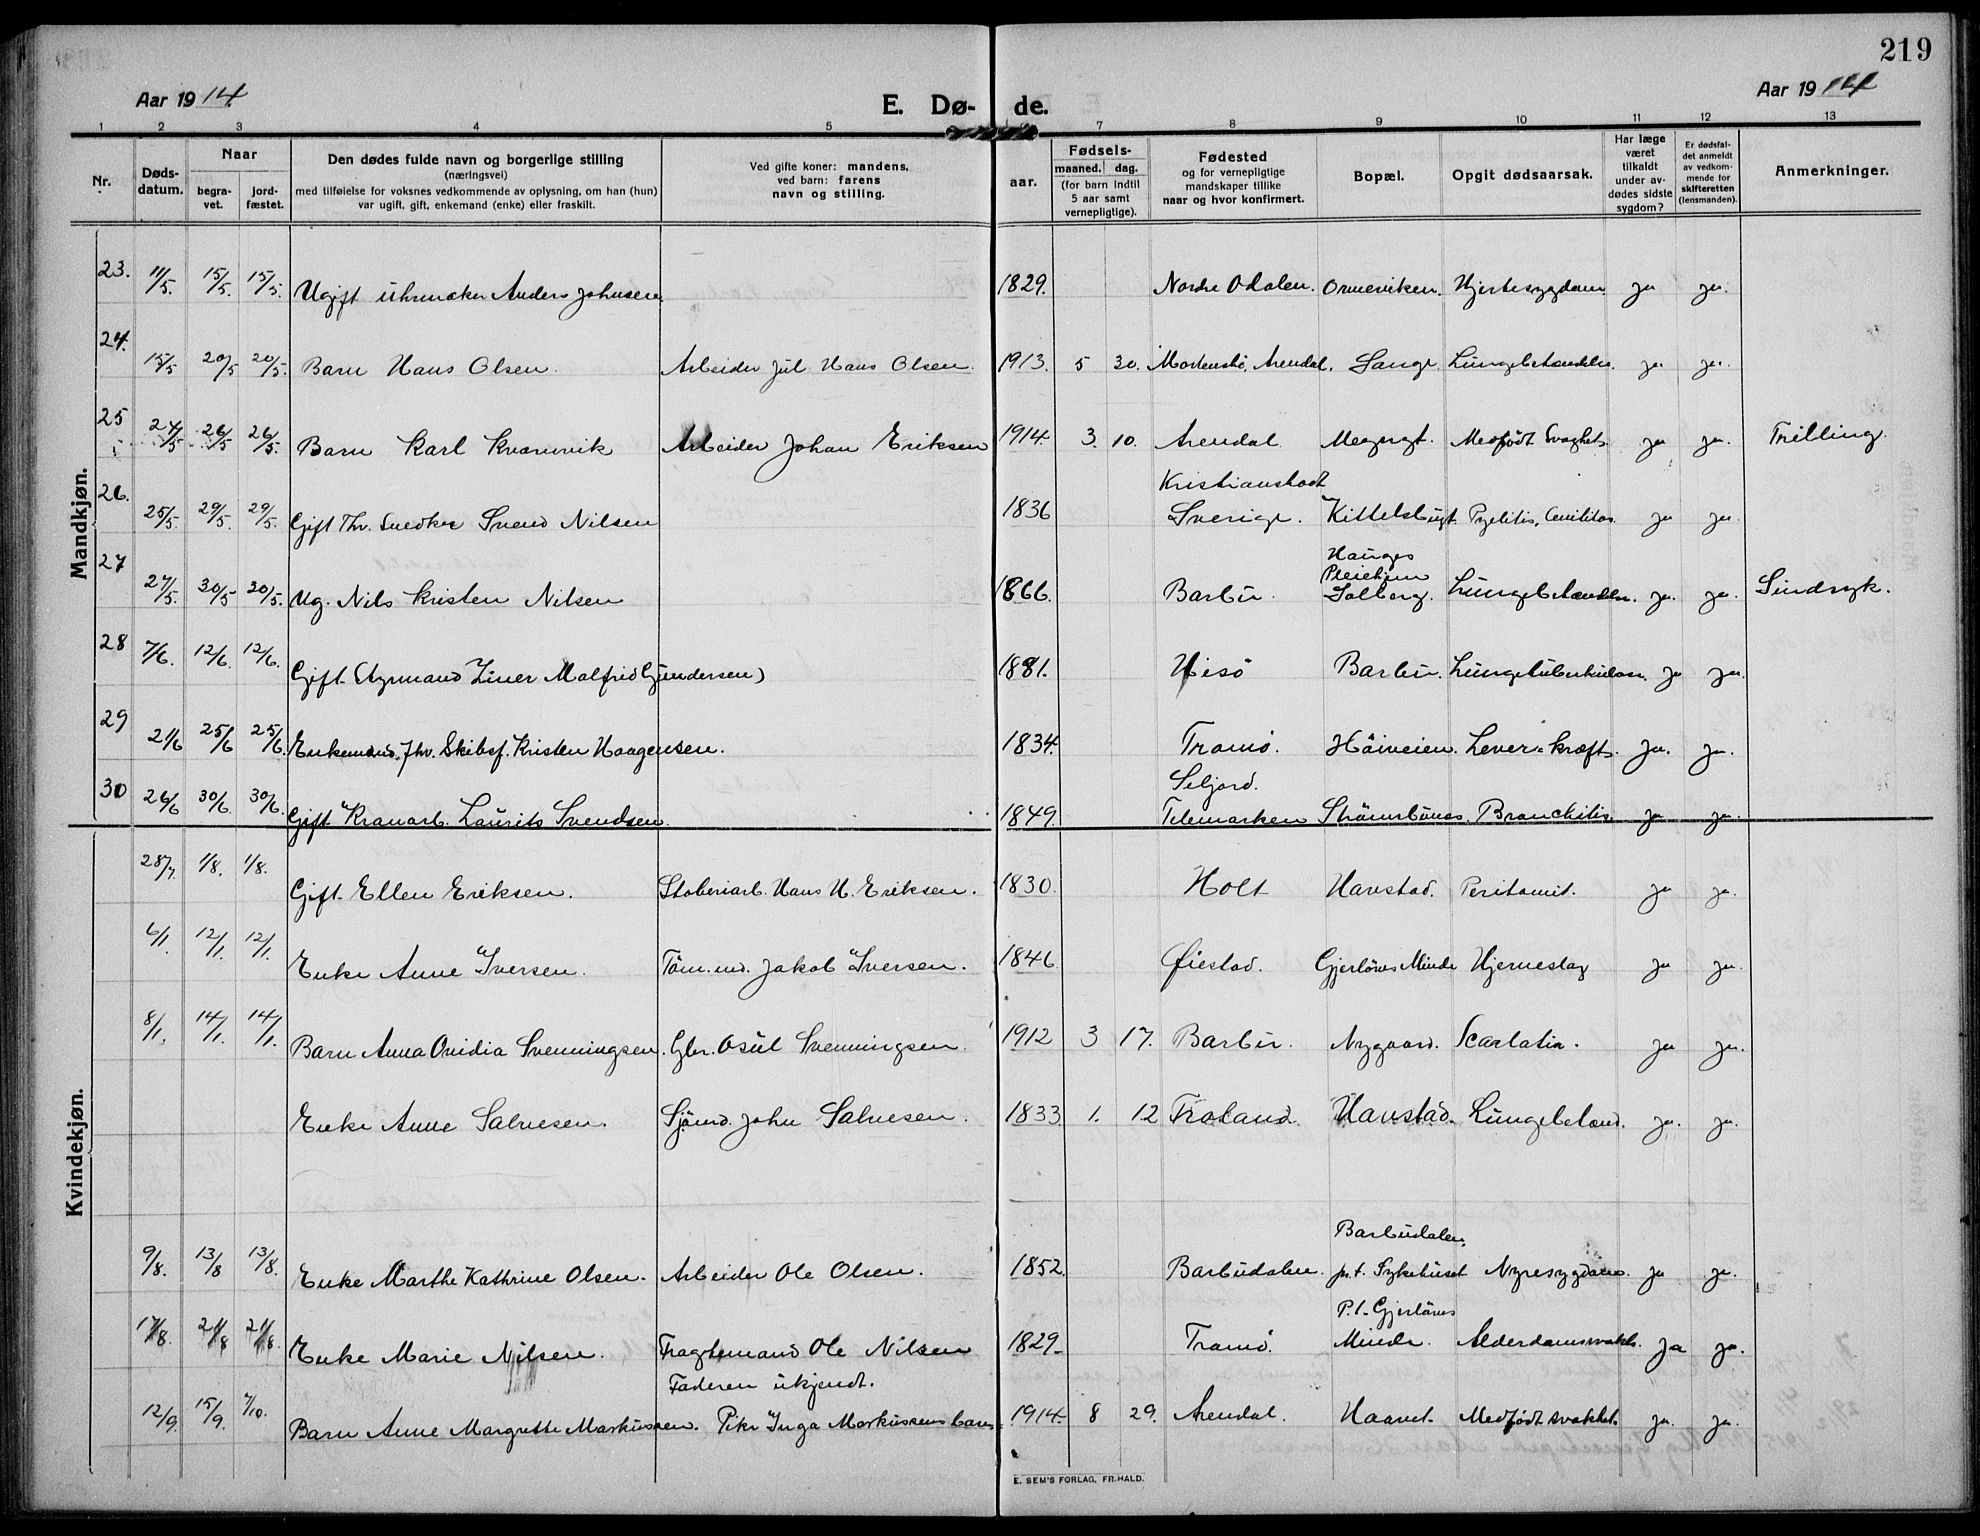 219
Aar 1914.
E. Dø-de.
Aar 1914
1 2 3 4 5 7 8 9 10 11 12 13
Nr.
Døds-
datum.
Naar
begra-
vet.
jord-
fæstet.
Den dødes fulde navn og borgerlige stilling
(næringsvei)
med tilføielse for voksnes vedkommende av oplysning, om han (hun)
var ugift, gift, enkemand (enke) eller fraskilt.
Ved gifte koner: mandens,
ved barn: farens
navn og stilling.
aar.
Fødsels-
maaned. dag.
(for barn indtil
5 aar samt
vernepligtige).
Fødested
og for vernepligtige
mandskaper tillike
naar og hvor konfirmert.
Bopæl.
Opgit dødsaarsak.
Har læge
været
tilkaldt
under av-
dødes sidste
sygdom?
Er dødsfal-
det anmeldt
av vedkom-
mende for
skifteretten
(lensmanden).
Anmerkninger.
Mandkjøn.
23. 11/5. 15/5. 15/5. Ugift uhrmaker Anders Johnsen. 1829. Nordre Odalen. Ormeviken. Hjertesygdom ja ja.
24. 15/5 20/5 20/5. Barn Hans Olsen. Arbeider Jul Hans Olsen. 1913. 5 30. Mortensbö, Arendal. Lange Lungebetændelse. ja ja.
25 24/5 26/5 26/5. Barn Karl Kvarnvik Arbeider Johan Eriksen 1914. 3. 10. Arendal Megrugt. Medfödt Svaghet. ja ja. Trilling.
Kristianstadt
26. 25/5. 29/5. 29/5. Gift Fhv. Snedker Svend Nilsen 1836 Sverige. Kittelsbugt. Pyelitis, ja ja.
Hauges
Pleiehjem
27 27/5. 30/5 30/5. Ug. Nils Kristen Nilsen 1866. Barbu. Solberg. Lungebetændelse. ja. ja. Sindsyk.
28 7/6. 12/6. 12/6. Gift Styrmand Einer Malfrid Gundersen) 1881. Hisö Barbu. Lungetuberkulose. ja ja.
29 21/6 25/6 25/6. Enkemand. Fhv. Skibsf. Kristen Haagensen. 1834. Tromö. Höiveien. Lever-kræft. ja. ja.
Seljord.
30 26/6 30/6. 30/6. Gift Kranarb. Laurits Svendsen. 1849. Telemarken Strömsbunes. Bronchitis. ja ja.
Kvindekjøn.
28/7. 1/8. 1/8. Gift Ellen Eriksen. Stoberiarb. Hans H. Eriksen. 1830. Holt Havstad. Peritonit. ja ja.
6/1. 12/1. 12/1. Enke Anne Iversen. Töm.md. Jakob Iversen. 1846. Øiestad. Gjerlöws Minde Hjerneslag ja ja.
8/1. 14/1. 14/1. Barn Anna Ovidia Svenningsen. Gbr. Osul Svenningsen. 1912 3 17. Barbu. Nygaard. Scarlatin. ja ja.
Enke Anne Salvesen. Sjömd. John Salvesen. 1833 1. 12 Froland. Havstad. Lungebetænd. ja. ja.
Barbudalen.
9/8. 13/8 13/8. Enke Marthe Kathrine Olsen. Arbeider Ole Olsen. 1852. Barbudalen. p.t. Sykehuset Nyresygdom. ja ja.
P.t. Gjerlöws
17/8. 21/8 21/8. Enke Marie Nilsen. Fragtemand Ole Nilsen 1829. Tromö. Minde. Alderdomssvakh. ja ja.
Faderen ukjendt.
12/9. 15/9. 7/10. Barn Anne Margrethe Markussen. Pike Inga Markussens barn 1914. 8 29. Arendal. Haavet. Medfödt svakhet. ja. ja.
E. SEM'S FORLAG, FR.HALD.